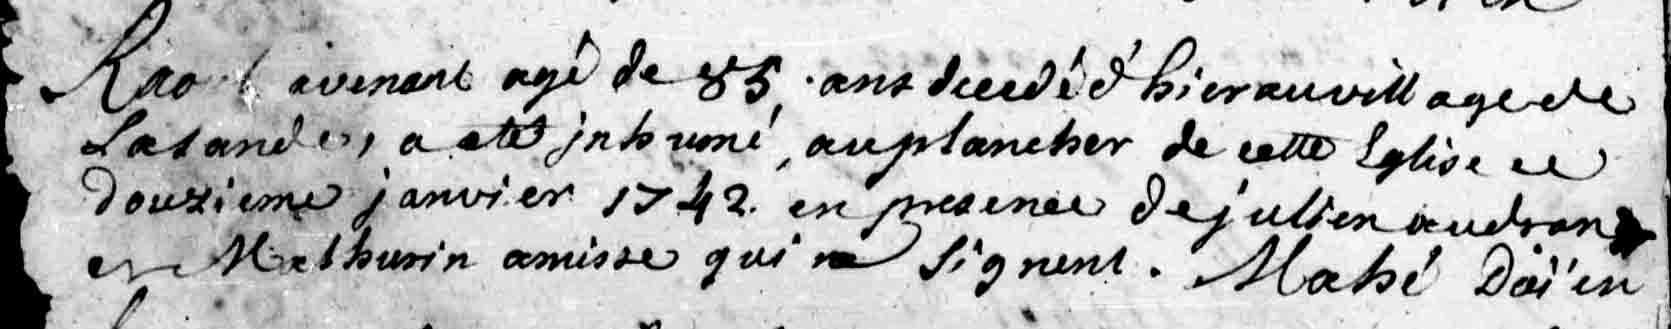 Raoul avenart agé de 85 ans decedé d'hier au village de
La Lande, a eté jnhumé, au plancher de cette Eglise ce
douzieme janvier 1742. en presence de julien audran
et Mathurin amisse qui ne signent. Mahé Doïen